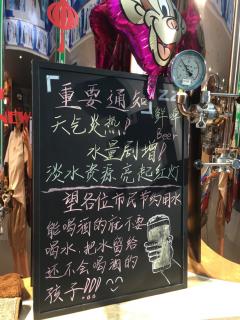 重要通知
天气炎热!
鲜卓
Beer
水量剧增!
淡水资源亮起红灯
望各位市民节约用水
能喝酒的就不要
喝水,把水留给
还不会喝酒的
孩子!!!